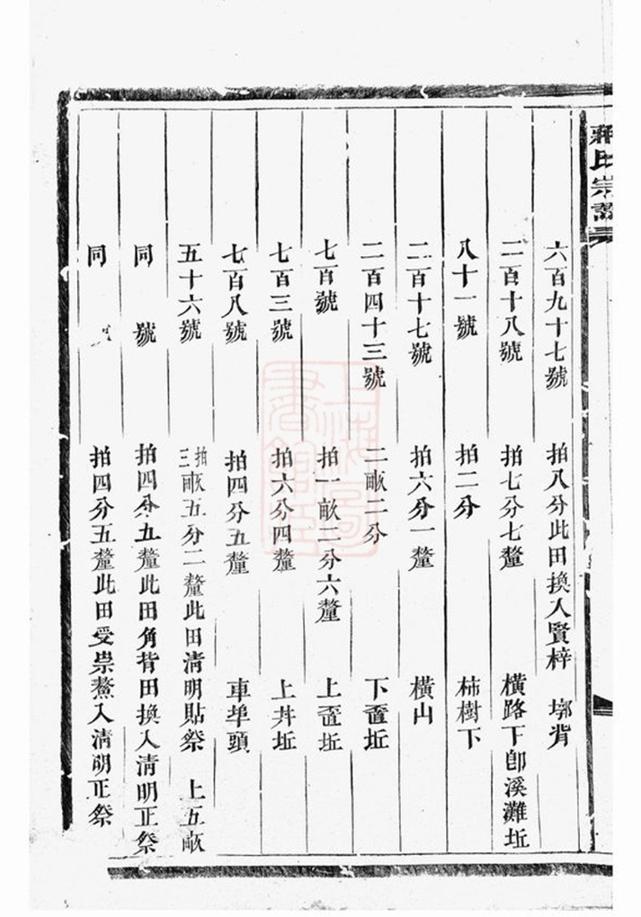 蔣氏宗譜
六百九十七號 拍八分此田換入賢梓 墎背
二百十八號 拍七分七釐 橫路下卽溪灘坵
八十一號 拍二分 柿樹下
二百十七號 拍六分一釐 橫山
二百四十三號 二畝二分 下坵
七百號 拍一畝二分六釐 上坵
七百三號 拍六分四釐 上井坵
七百八號 拍四分五釐 車埠頭
五十六號 拍三畝五分二釐此田清明貼祭 上五畝
同號 拍四分五釐此田角背田換入清明正祭
同 拍四分五釐此田受崇鰲入清明正祭
上海圖書館藏